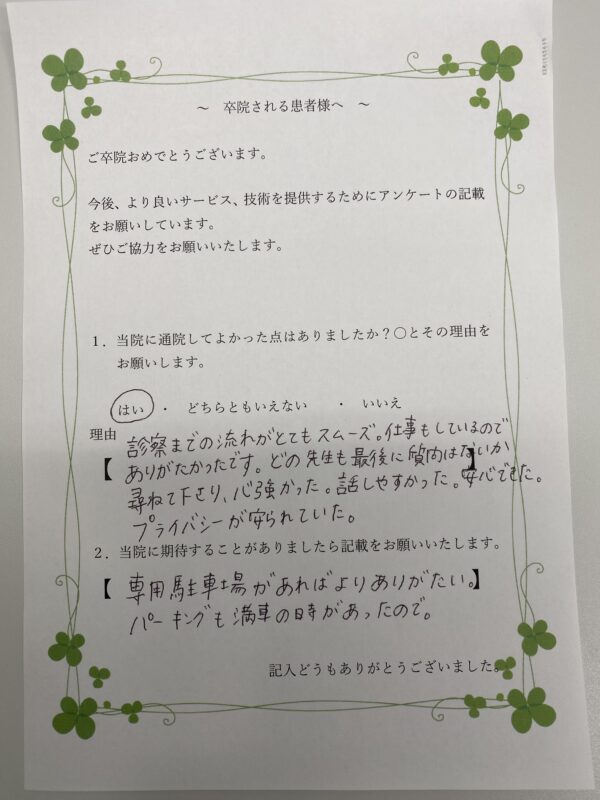 ～ 卒院される患者様へ ～
ご卒院おめでとうございます。
今後、より良いサービス、技術を提供するためにアンケートの記載
をお願いしています。
ぜひご協力をお願いいたします。
１．当院に通院してよかった点はありましたか？〇とその理由を
お願いします。
はい ・ どちらともいえない ・ いいえ
理由
【 診察までの流れがとてもスムーズ。仕事もしているので
ありがたかったです。どの先生も最後に質問はないか 】
尋ねて下さり、心強かった。話しやすかった。安心できた。
プライバシーが守られていた。
２．当院に期待することがありましたら記載をお願いいたします。
【 専用駐車場があればよりありがたい。】
パーキングも満車の時があったので。
記入どうもありがとうございました。